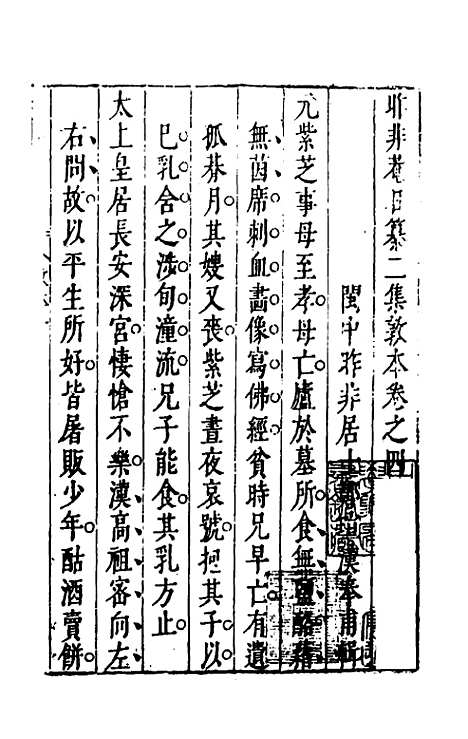 昨非菴日纂二集敦本卷之四
閩中昨非居士鄭瑄漢奉甫輯
元紫芝事母至孝母亡廬於墓所食無鹽酪藉
無茵席刺血畵像寫佛經貧時兄早亡有遺
孤朞月其嫂又喪紫芝晝夜哀號抱其子以
已乳含之涉旬潼流兄子能食其乳方止
太上皇居長安深宮悽愴不樂漢高祖宻向左
右問故以平生所好皆屠販少年酤酒賣餅